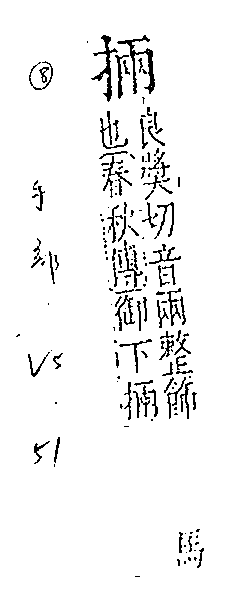 掚
良獎切音兩整飾
也春秋傳御下掚
馬
⑧
手部.VS.51